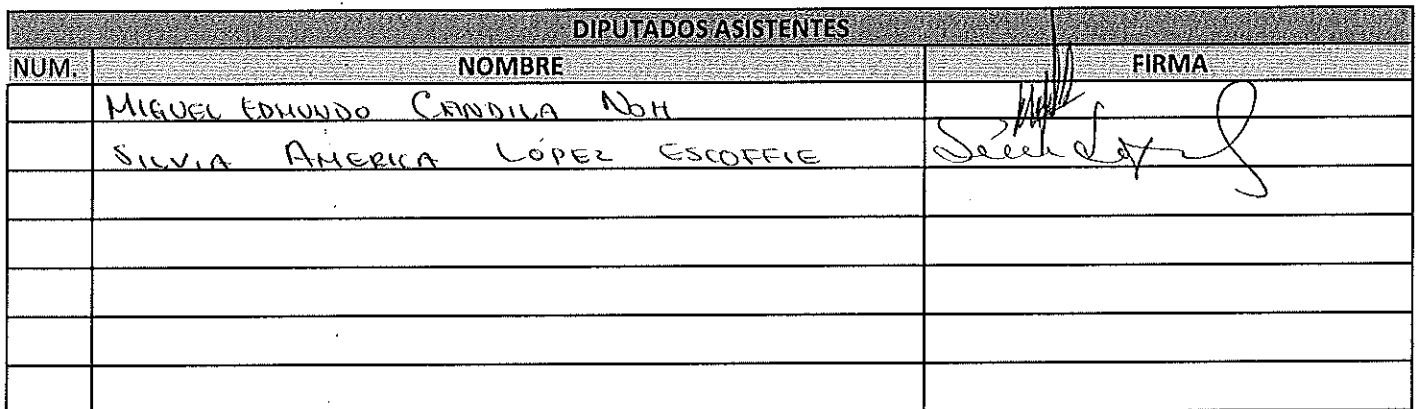 DIPUTADOS ASISTENTES
NUM. NOMBRE FIRMA
MIGUEL EDMUNDO CANDILA NOH
SILVIA AMERICA LÓPEZ ESCOFFIE